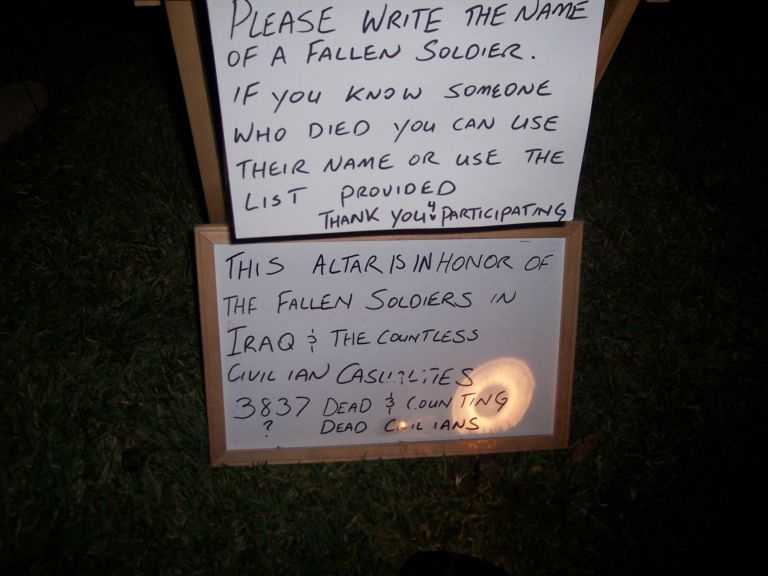 PLEASE WRITE THE NAME
OF A FALLEN SOLDIER.
IF YOU KNOW SOMEONE
WHO DIED YOU CAN USE
THEIR NAME OR USE THE
LIST PROVIDED
THANK YOU 4 PARTICIPATING
THIS ALTAR IS IN HONOR OF
THE FALLEN SOLDIERS IN
IRAQ & THE COUNTLESS
CIVILIAN CASUALITES
3837 DEAD & COUNTING
? DEAD CIVILIANS